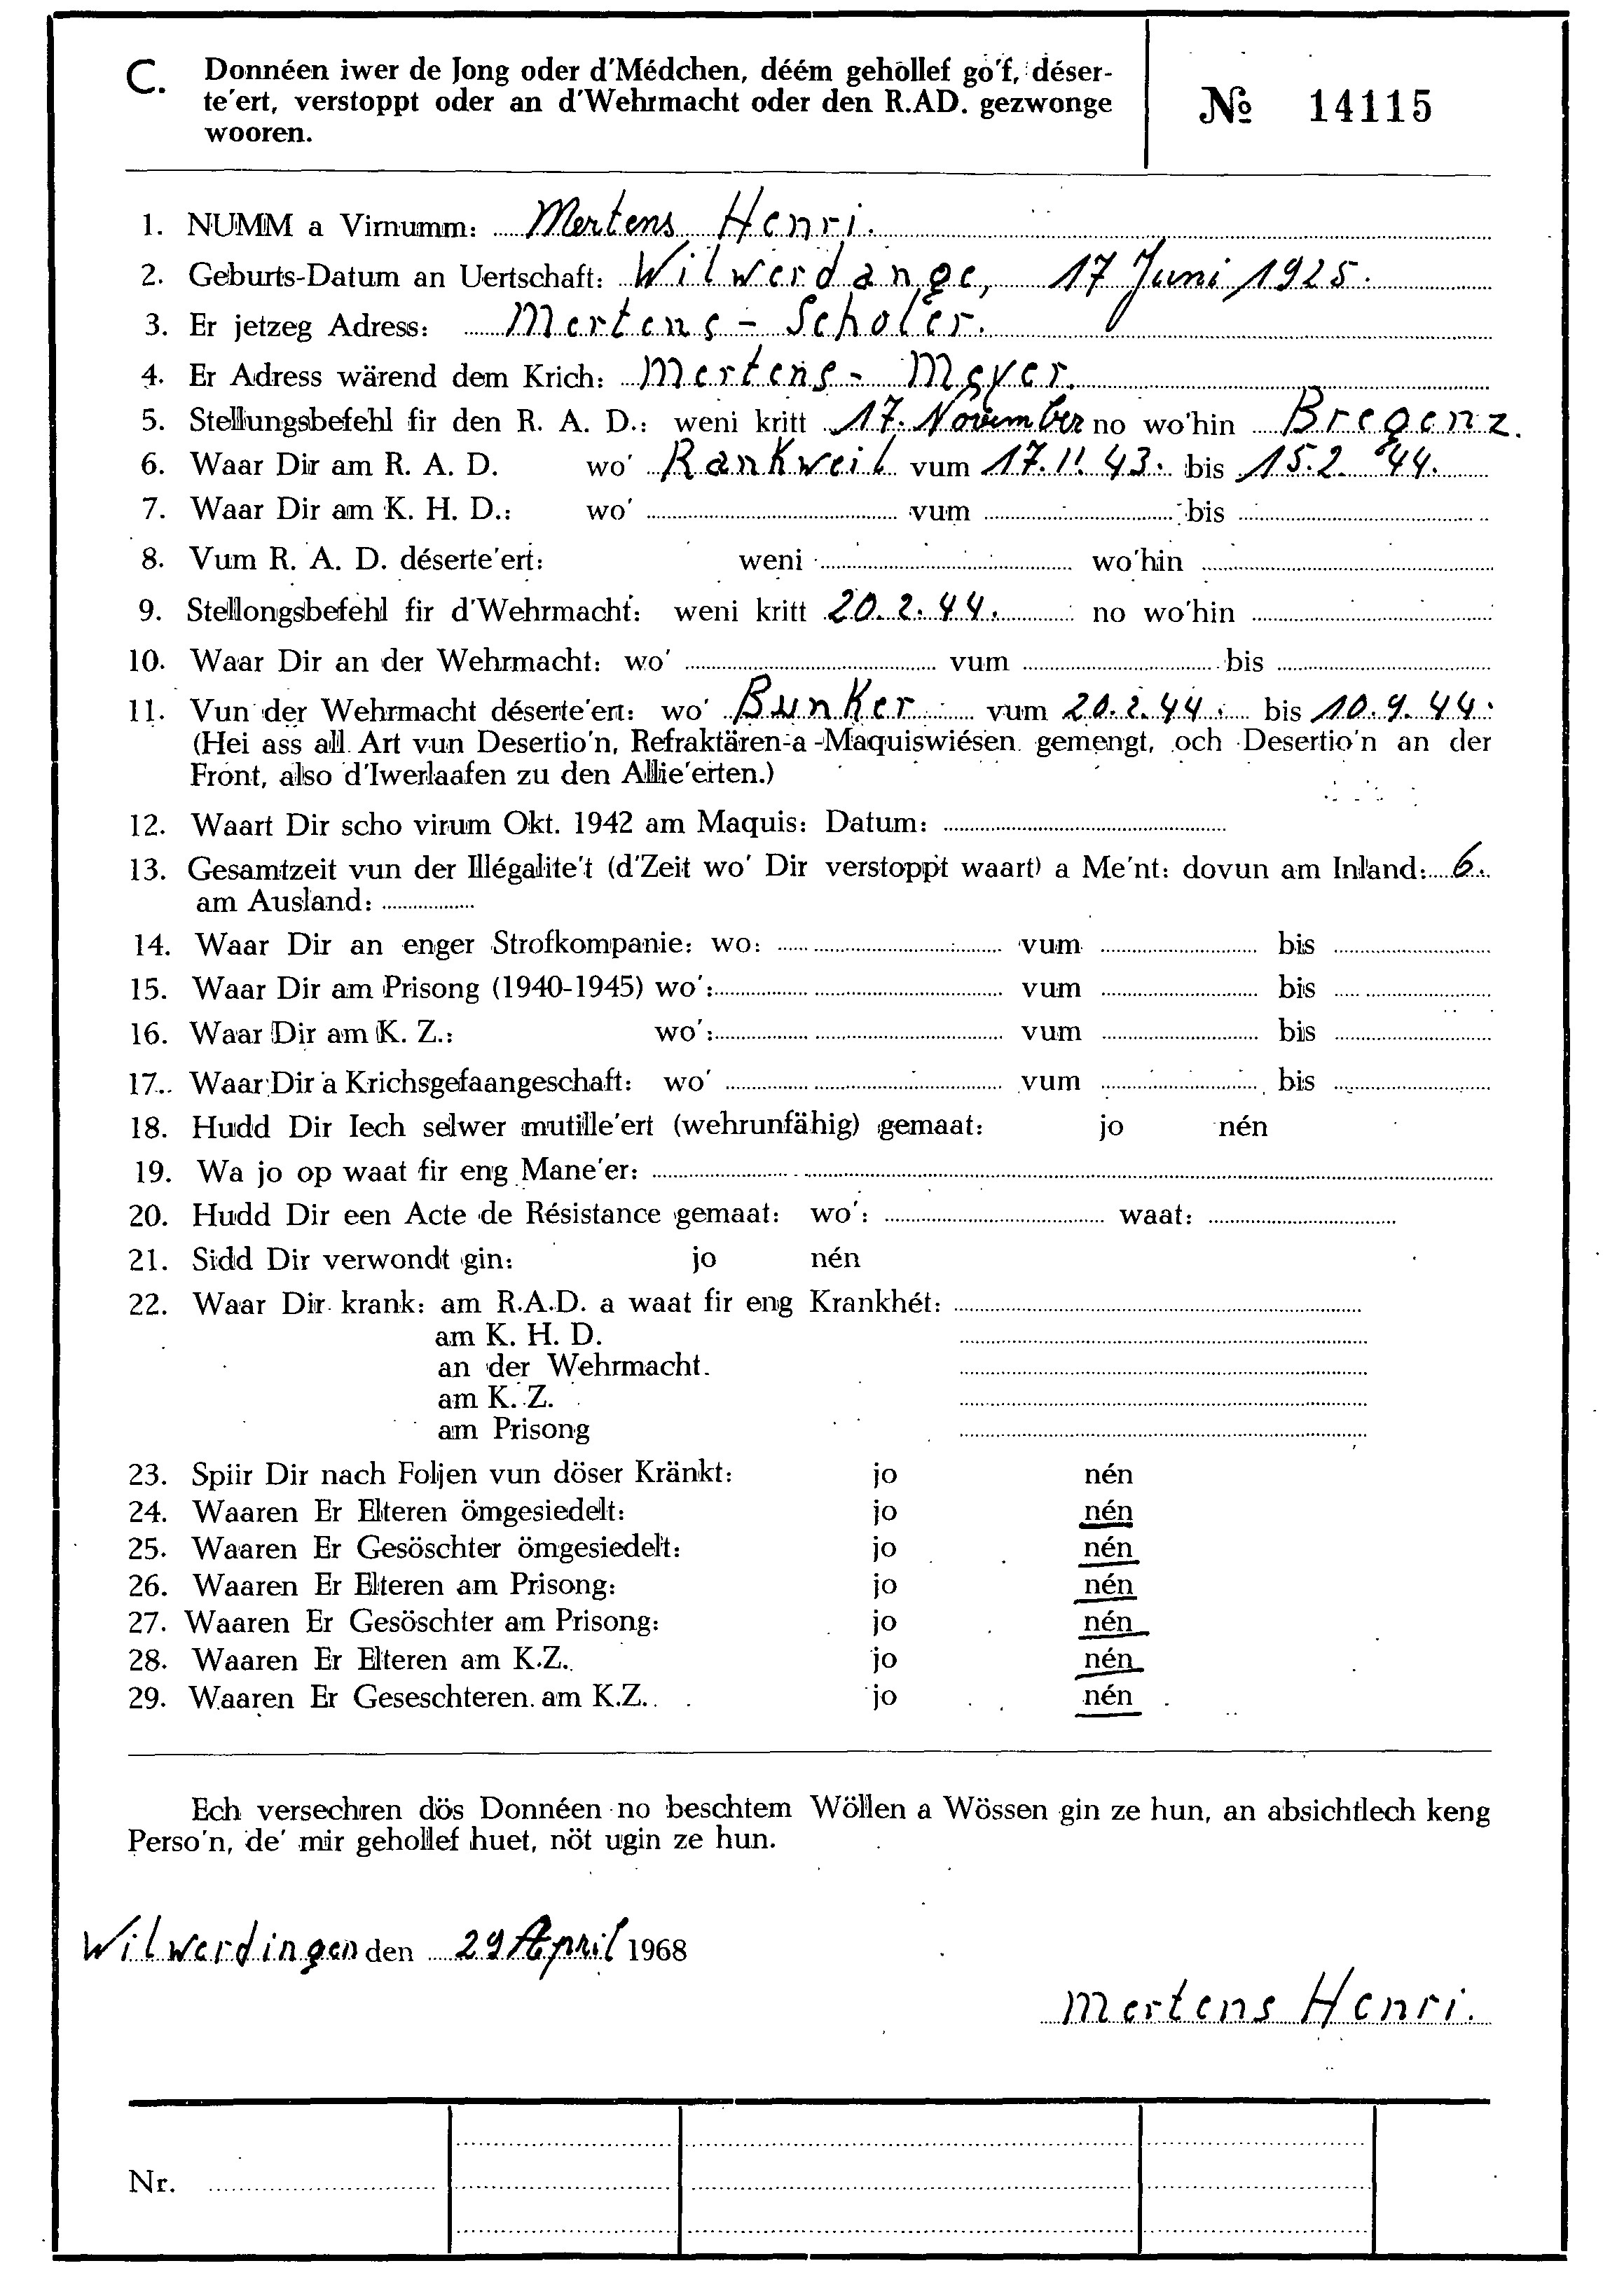 C. Donnéen iwer de Jong oder d'Médchen, déém gehöllef go'f, déser-
te'ert, verstoppt oder an d'Wehrmacht oder den R.AD. gezwonge
wooren.
№ 14115
1. NUMM a Virnumm: Mertens Henri.
2. Geburts-Datum an Uertschaft: Wilwerdange, 17 Juni 1925.
3. Er jetzeg Adress: Mertens - Scholer.
4. Er Adress wärend dem Krich: Mertens - Meyer.
5. Stellungsbefehl fir den R. A. D.: weni kritt 17. November no wo'hin Bregenz.
6. Waar Dir am R. A. D. wo' Rankweil vum 17.11.43. bis 15.2.44.
7. Waar Dir am K. H. D.: wo' vum bis
8. Vum R. A. D. déserte'ert: weni wo'hin
9. Stellongsbefehl fir d'Wehrmacht: weni kritt 20.2.44. no wo'hin
10. Waar Dir an der Wehrmacht: wo' vum bis
11. Vun der Wehrmacht déserte'ert: wo' Bunker vum 20.2.44. bis 10.9.44.
(Hei ass all Art vun Desertio'n, Refraktären-a-Maquiswiésen gemengt, och Desertio'n an der
Front, also d'Iwerlaafen zu den Allie'erten.)
12. Waart Dir scho virum Okt. 1942 am Maquis: Datum:
13. Gesamtzeit vun der Illégalite't (d'Zeit wo' Dir verstoppt waart) a Me'nt: dovun am Inland: 6.
am Ausland:
14. Waar Dir an enger Strofkompanie: wo: vum bis
15. Waar Dir am Prisong (1940-1945) wo': vum bis
16. Waar Dir am K. Z.: wo': vum bis
17. Waar Dir a Krichsgefaangeschaft: wo' vum bis
18. Hudd Dir Iech selwer mutille'ert (wehrunfähig) gemaat: jo nén
19. Wa jo op waat fir eng Mane'er:
20. Hudd Dir een Acte de Résistance gemaat: wo': waat:
21. Sidd Dir verwondt gin: jo nén
22. Waar Dir krank: am R.A.D. a waat fir eng Krankhét:
am K. H. D.
an der Wehrmacht.
am K. Z.
am Prisong
23. Spiir Dir nach Foljen vun döser Kränkt: jo nén
24. Waaren Er Elteren ömgesiedelt: jo nén
25. Waaren Er Gesöschter ömgesiedelt: jo nén
26. Waaren Er Elteren am Prisong: jo nén
27. Waaren Er Gesöschter am Prisong: jo nén
28. Waaren Er Elteren am K.Z. jo nén
29. Waaren Er Geseschteren am K.Z. jo nén
Ech versechren dös Donnéen no beschtem Wöllen a Wössen gin ze hun, an absichtlech keng
Perso'n, de' mir gehollef huet, nöt ugin ze hun.
Wilwerdingen den 29 April 1968
Mertens Henri.
Nr.